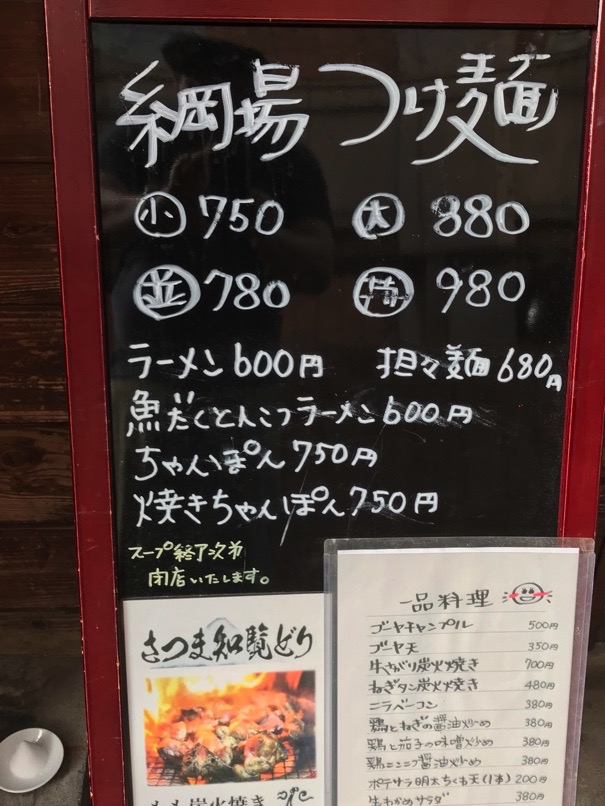 綱場つけ麺
小 750 大 880
並 780 特 980
ラーメン600円 担々麺680円
魚だくとんこつラーメン600円
ちゃんぽん750円
焼きちゃんぽん750円
スープ終了次第
閉店いたします。
さつま知覧どり
もも炭火焼き
一品料理
ゴーヤチャンプル 500円
ゴーヤ天 350円
牛さがり炭火焼き 700円
ねぎタン炭火焼き 480円
ニラベーコン 380円
鶏とねぎの醤油炒め 380円
鶏と茄子の味噌炒め 380円
鶏ニンニク醤油炒め 380円
ポテサラ明太ちくわ天(1本) 200円
生わかめサラダ 380円